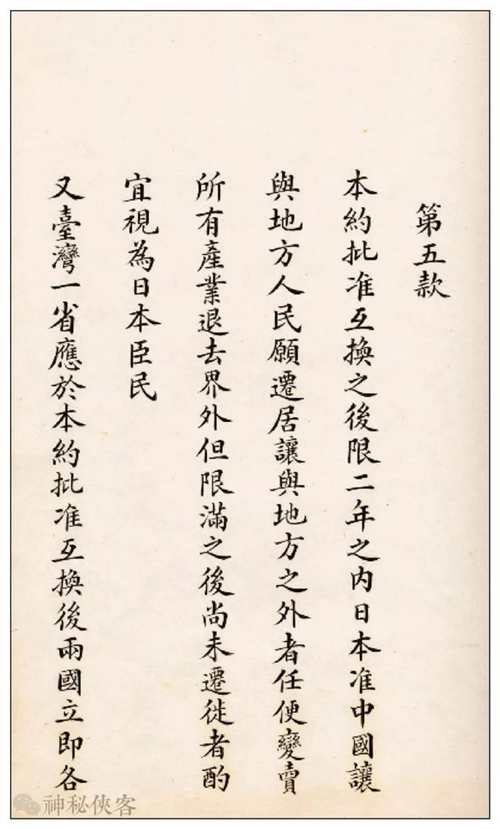 第五款
本約批准互換之後限二年之内日本准中國讓
與地方人民願遷居讓與地方之外者任便變賣
所有產業退去界外但限滿之後尚未遷徙者酌
宜視為日本臣民
又臺灣一省應於本約批准互換後兩國立即各
神秘俠客